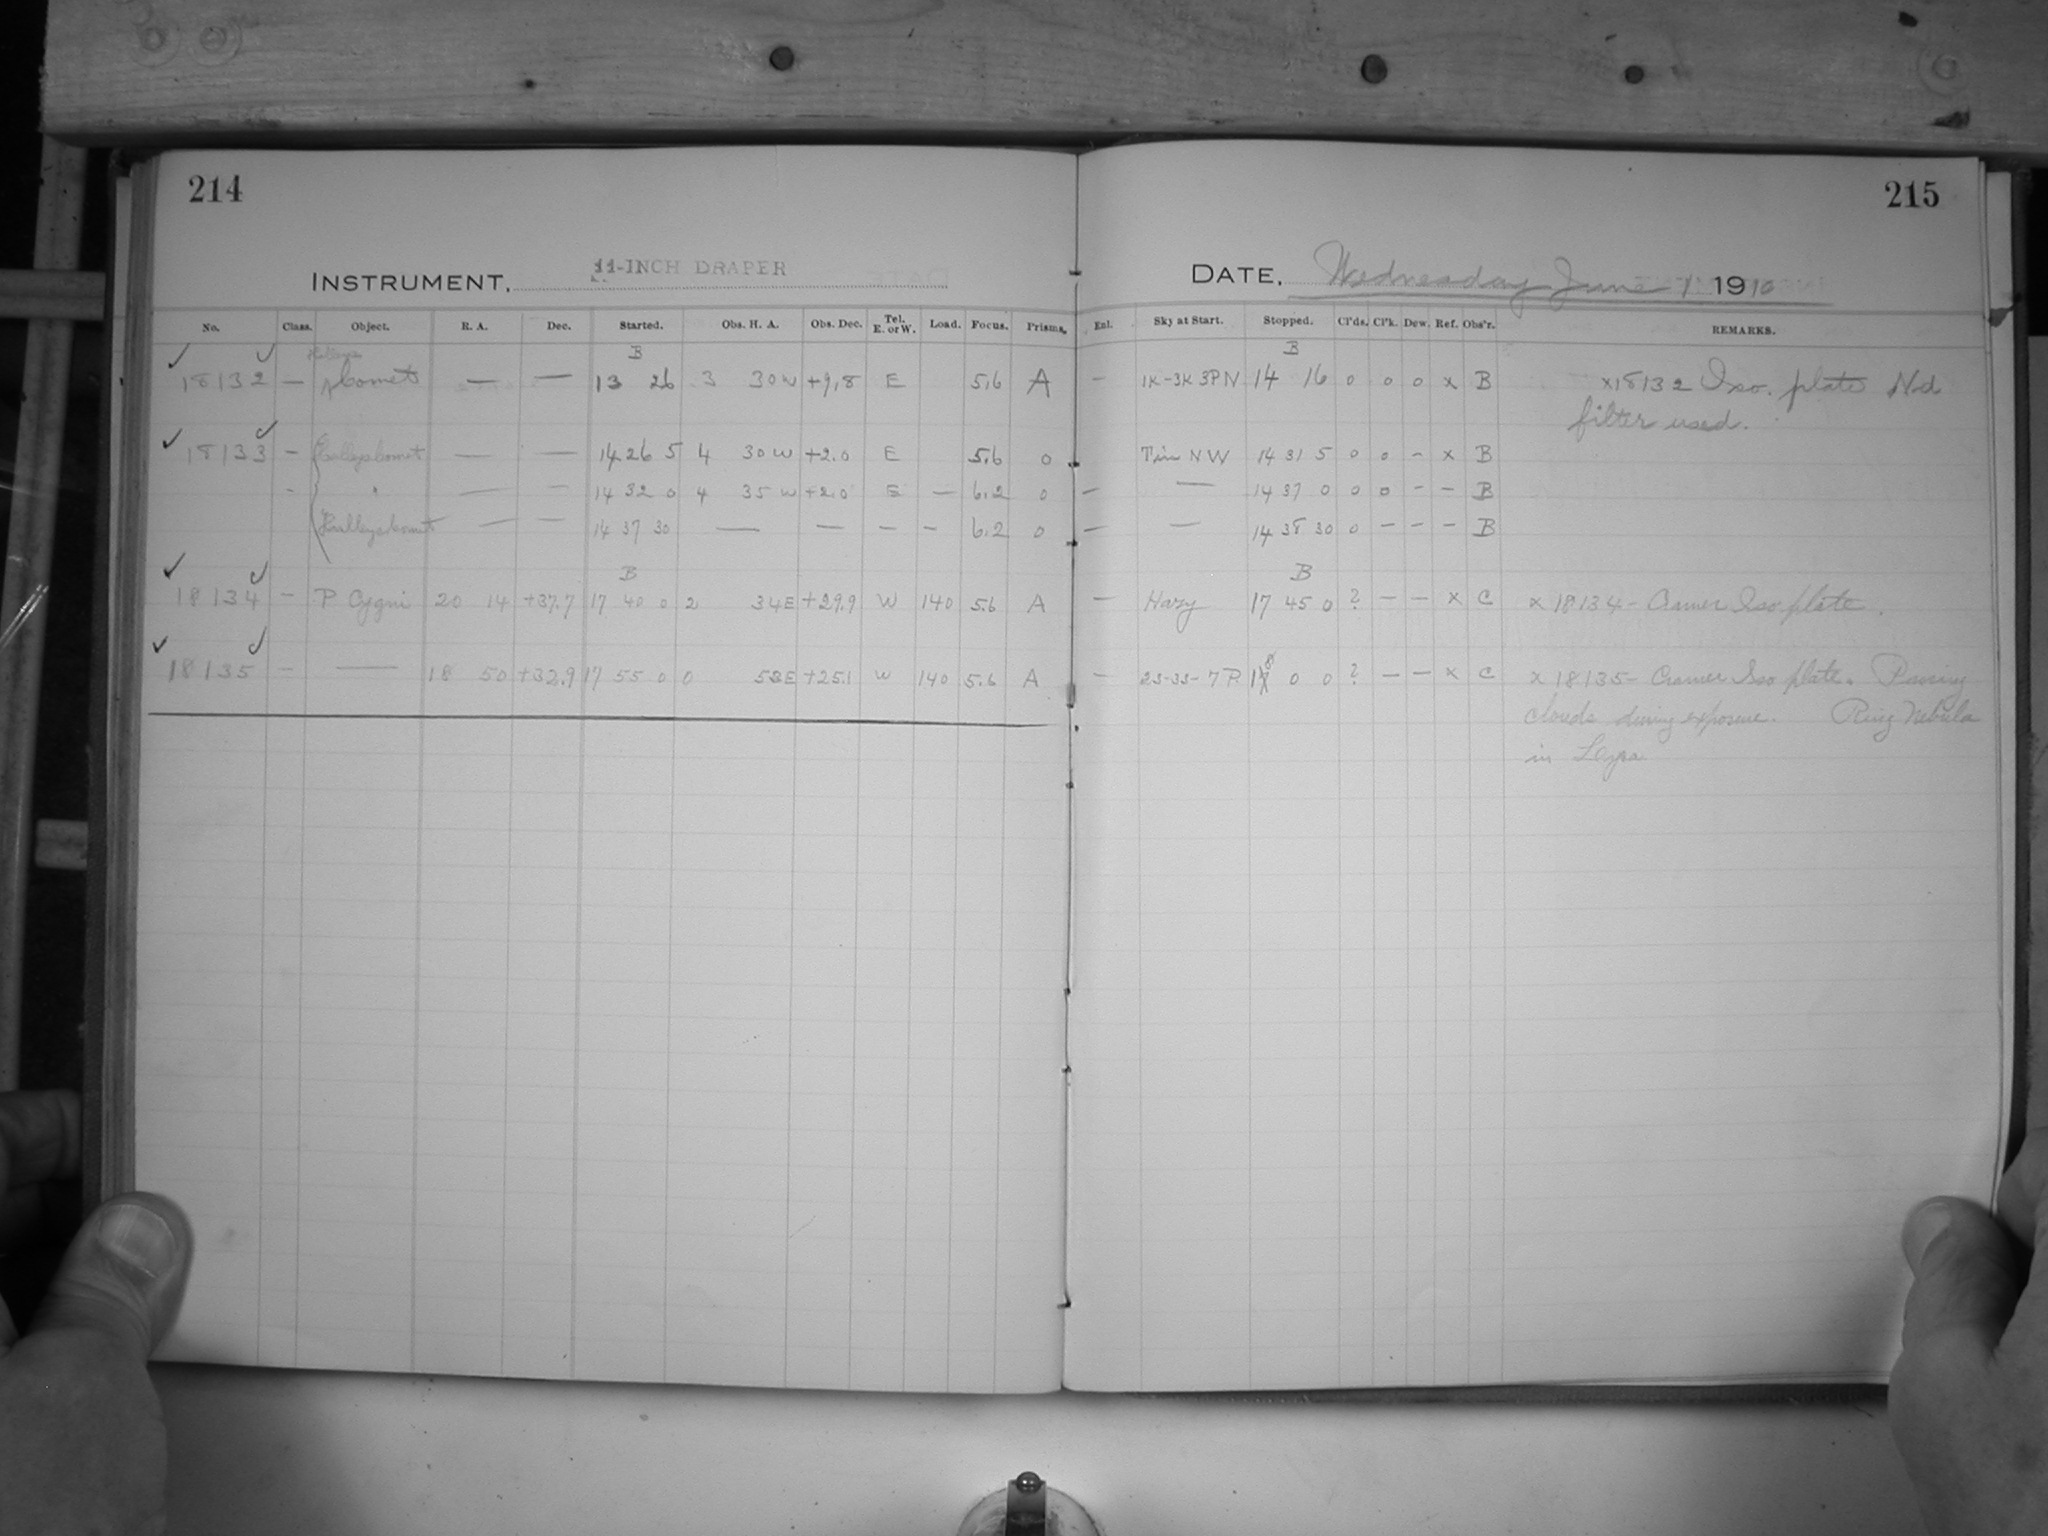 214
215
INSTRUMENT, 11-INCH DRAPER
DATE, Wednesday June 1 1910
No. Class. Object. R. A. Dec. Started. Obs. H. A. Obs. Dec. Tel. E. or W. Load. Focus. Prisms. Enl. Sky at Start. Stopped. Cl'ds. Cl'k. Dew. Ref. Obs'r. REMARKS.
Halleys B B
18132 — Comet — — 13 26 3 30 W +9,8 E 5,6 A — 1K-3K 3PN 14 16 0 0 0 x B x18132 Iso. plate Nd
filter used.
18133 — Halleys Comet — — 14 26 5 4 30 W +2.0 E 5.6 0 NW 14 31 5 0 0 — x B
— " — — 14 32 0 4 35 W +2.0 E — 6.2 0 — — 14 37 0 0 0 — — B
Halleys Comet — — 14 37 30 — — — — 6.2 0 — — 14 38 30 0 — — — B
B B
18134 — P Cygni 20 14 +37.7 17 40 0 2 34E +29.9 W 140 5.6 A — Hazy 17 45 0 ? — — x C x 18134 - Cramer Iso plate.
18135 — — 18 50 +32.9 17 55 0 0 58E +25.1 W 140 5.6 A — 2S-3S-7P. 18 0 0 ? — — x C x 18135 - Cramer Iso plate. Passing
clouds during exposure. Ring Nebula
in Lyra